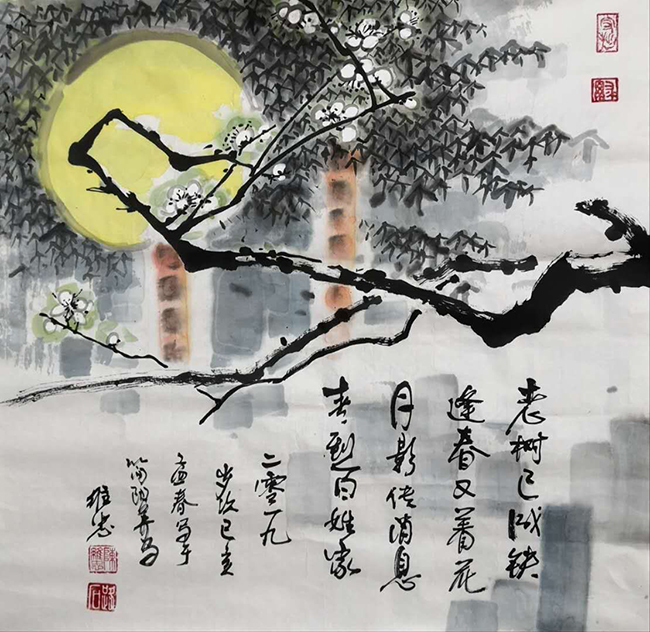 老树已成铁
逢春又著花
月影传消息
春到百姓家
二零一九
岁次己亥
孟春写于
阳
志